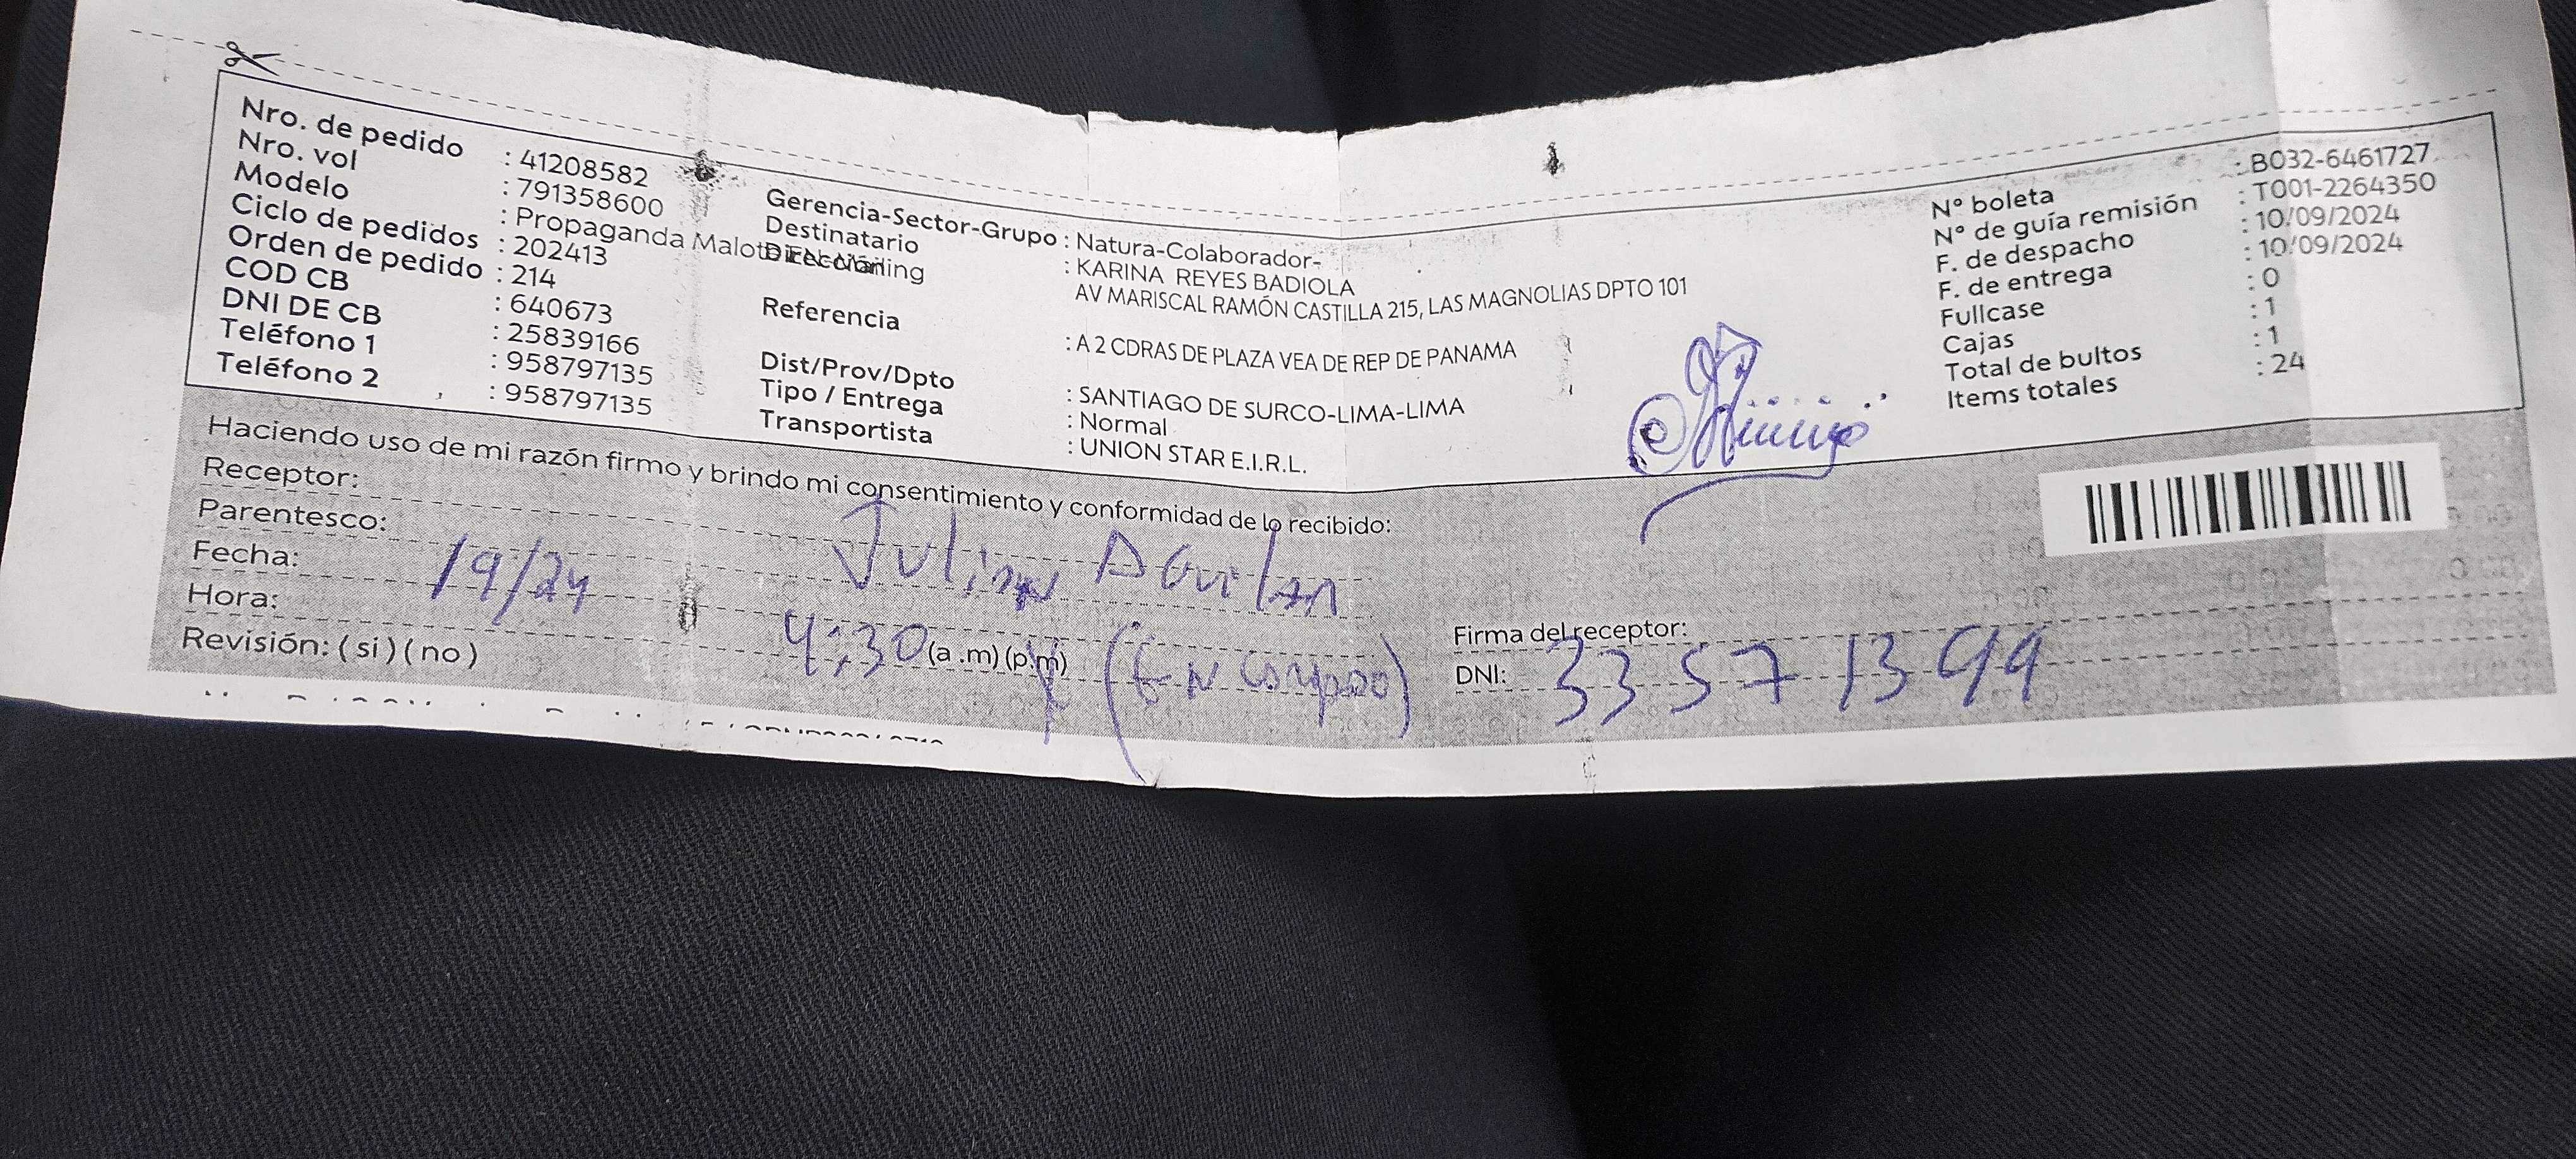 Nro. de pedido : 41208582
Nro. vol : 791358600
Modelo : Propaganda Malote
Ciclo de pedidos : 202413
Orden de pedido : 214
COD CB : 640673
DNI DE CB : 25839166
Teléfono 1 : 958797135
Teléfono 2 : 958797135
Gerencia-Sector-Grupo : Natura-Colaborador-
Destinatario : KARINA REYES BADIOLA
Dirección AV MARISCAL RAMÓN CASTILLA 215, LAS MAGNOLIAS DPTO 101
Referencia : A 2 CDRAS DE PLAZA VEA DE REP DE PANAMA
Dist/Prov/Dpto : SANTIAGO DE SURCO-LIMA-LIMA
Tipo / Entrega : Normal
Transportista : UNION STAR E.I.R.L.
N° boleta : B032-6461727
N° de guía remisión : T001-2264350
F. de despacho : 10/09/2024
F. de entrega : 10/09/2024
Fullcase : 0
Cajas : 1
Total de bultos : 1
Items totales : 24
Haciendo uso de mi razón firmo y brindo mi consentimiento y conformidad de lo recibido:
Receptor:
Parentesco: Julian Aguilar
Fecha: 19/24
Hora: 4:30 (a .m) (p.m)
Revisión: ( si ) ( no )
Firma del receptor:
DNI: 33571399